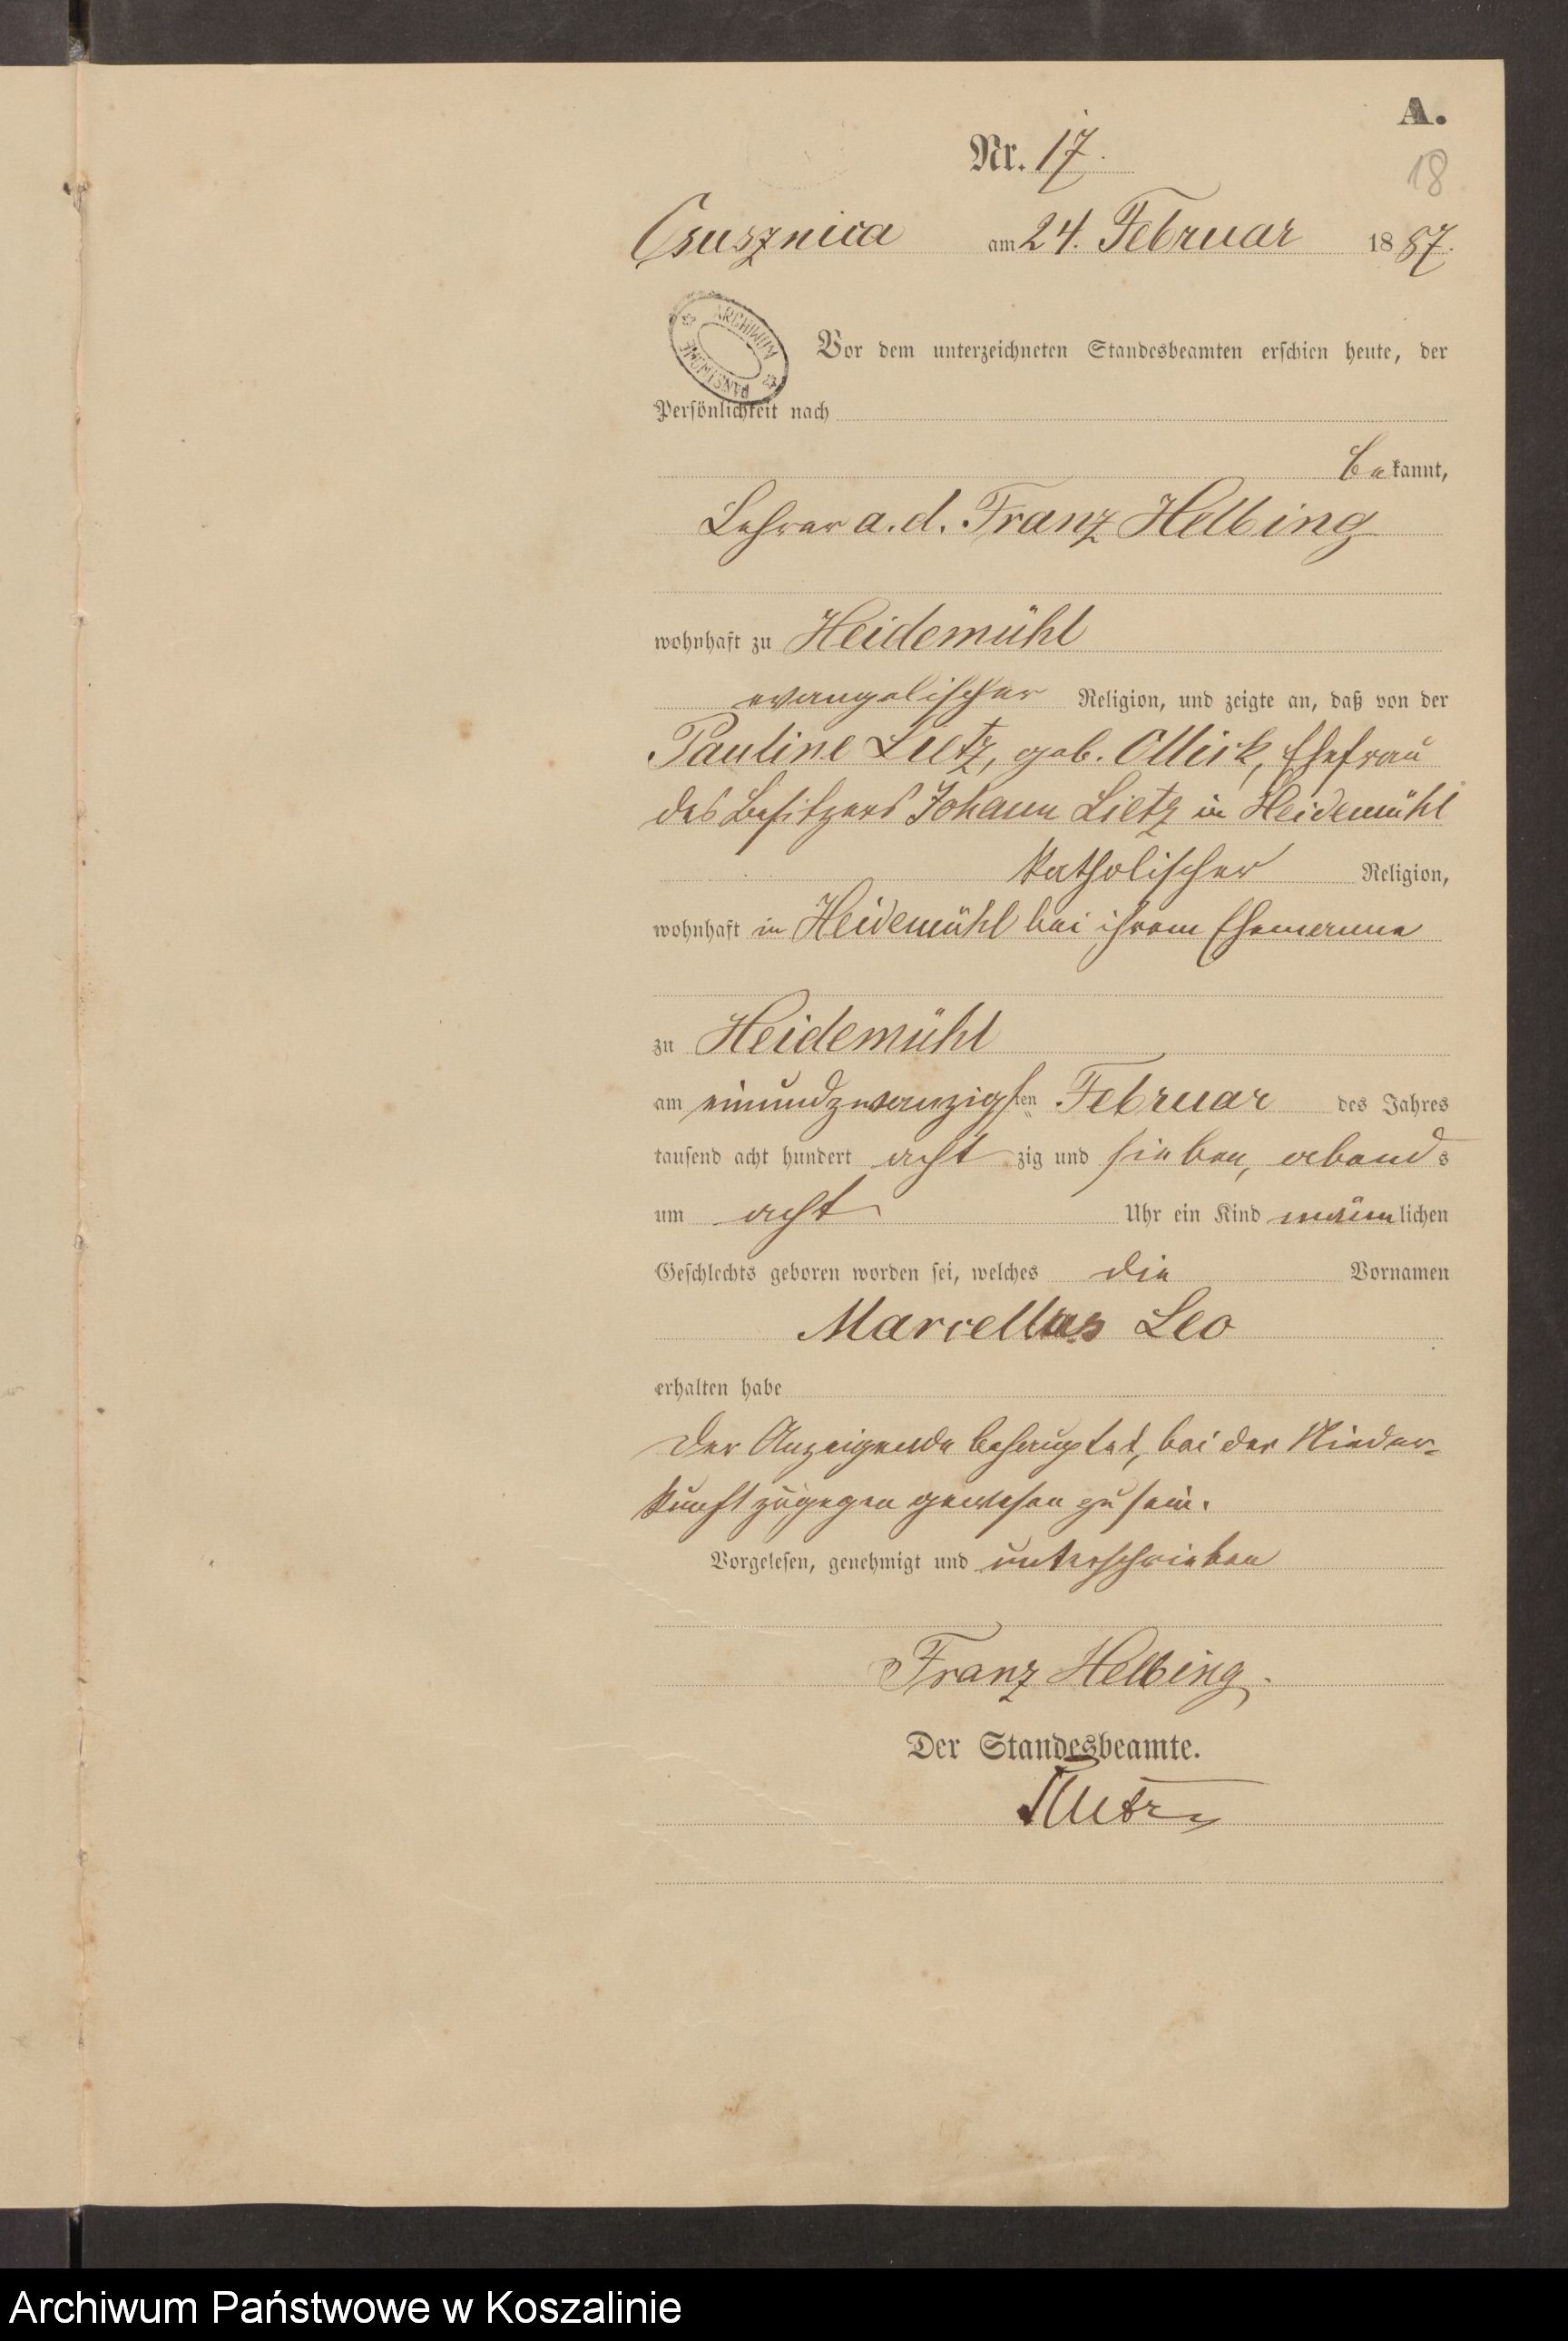 A.
Nr. 17.
18
Czusznica am 24. Februar 1887.
ARCHIWUM PAŃSTWOWE
Vor dem unterzeichneten Standesbeamten erschien heute, der
Persönlichkeit nach
bekannt,
Lehrer a. d. Franz Helbing
wohnhaft zu Heidemühl
evangelischer Religion, und zeigte an, daß von der
Pauline Lietz, geb. Ollick, Ehefrau
des Besitzers Johann Lietz in Heidemühl
katholischer Religion,
wohnhaft in Heidemühl bei ihrem Ehemanne
zu Heidemühl
am einundzwanzigsten Februar des Jahres
tausend acht hundert achtzig und sieben, abends
um acht Uhr ein Kind männlichen
Geschlechts geboren worden sei, welches die Vornamen
Marcellus Leo
erhalten habe
Der Anzeigende behauptet, bei der Nieder-
kunft zugegen gewesen zu sein.
Vorgelesen, genehmigt und unterschrieben
Franz Helbing.
Der Standesbeamte.
Archiwum Państwowe w Koszalinie